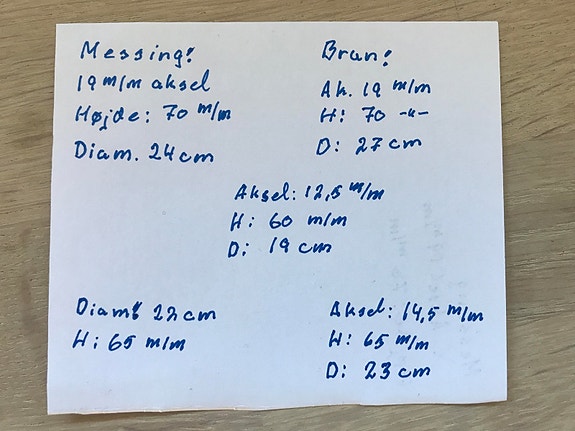 Messing!
19 m/m aksel
Højde: 70 m/m
Diam. 24 cm
Brun!
Ak. 19 m/m
H: 70 -"-
D: 27 cm
Aksel: 12,5 m/m
H: 60 m/m
D: 19 cm
H: 65 m/m
Aksel: 14,5 m/m
H: 65 m/m
D: 23 cm